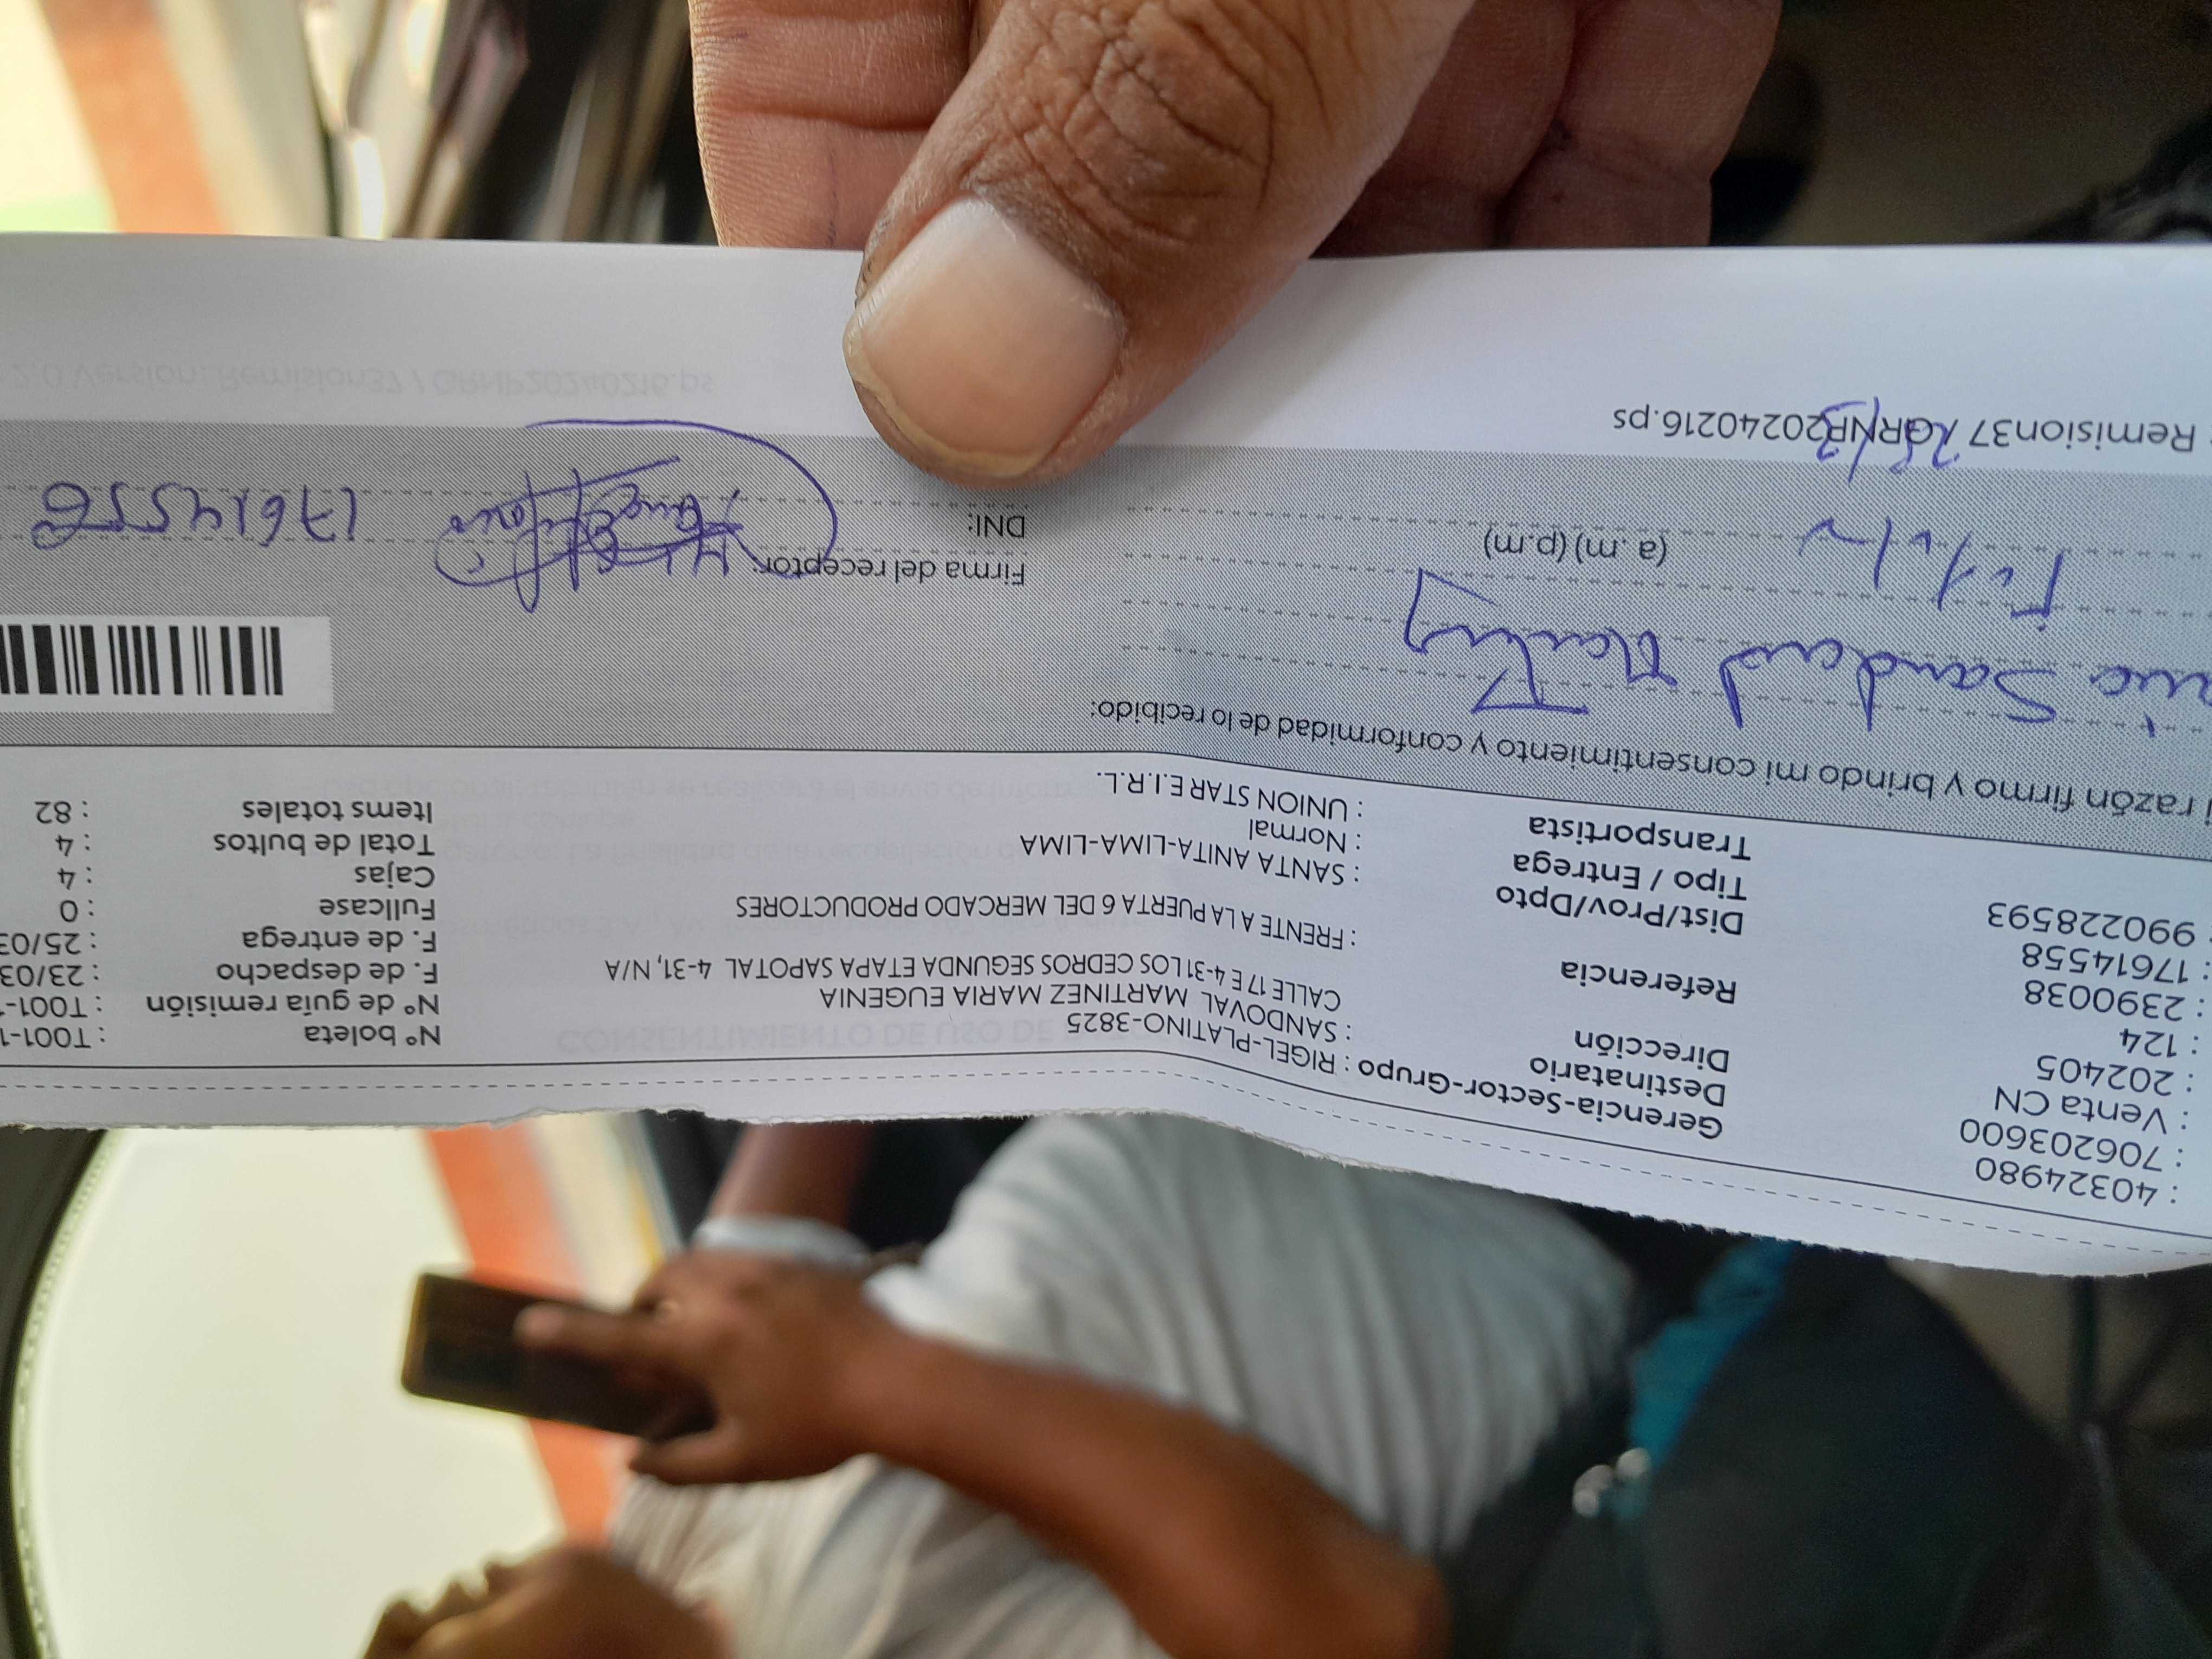 : 40324980
: 706203600
: Venta CN
: 202405
: 124
: 2390038
: 17614558
: 990228593
Gerencia-Sector-Grupo : RIGEL-PLATINO-3825
Destinatario : SANDOVAL MARTINEZ MARIA EUGENIA
Dirección CALLE 17 E 4-31 LOS CEDROS SEGUNDA ETAPA SAPOTAL 4-31, N/A
Referencia : FRENTE A LA PUERTA 6 DEL MERCADO PRODUCTORES
Dist/Prov/Dpto : SANTA ANITA-LIMA-LIMA
Tipo / Entrega : Normal
Transportista : UNION STAR E.I.R.L.
N° boleta : T001-1
N° de guía remisión : T001-
F. de despacho : 23/03
F. de entrega : 25/03
Fullcase : 0
Cajas : 4
Total de bultos : 4
Items totales : 82
razón firmo y brindo mi consentimiento y conformidad de lo recibido:
(a. m) (p.m)
Firma del receptor:
DNI:
17614558
Remision37 / GRNP20240216.ps
2.0 Version: Remision37 / GRNP20240216.ps